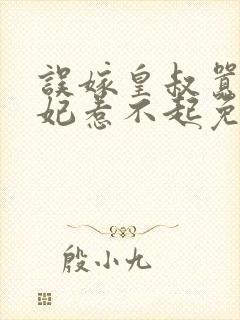 誤嫁皇叔囂
妃惹不起免
殷小九